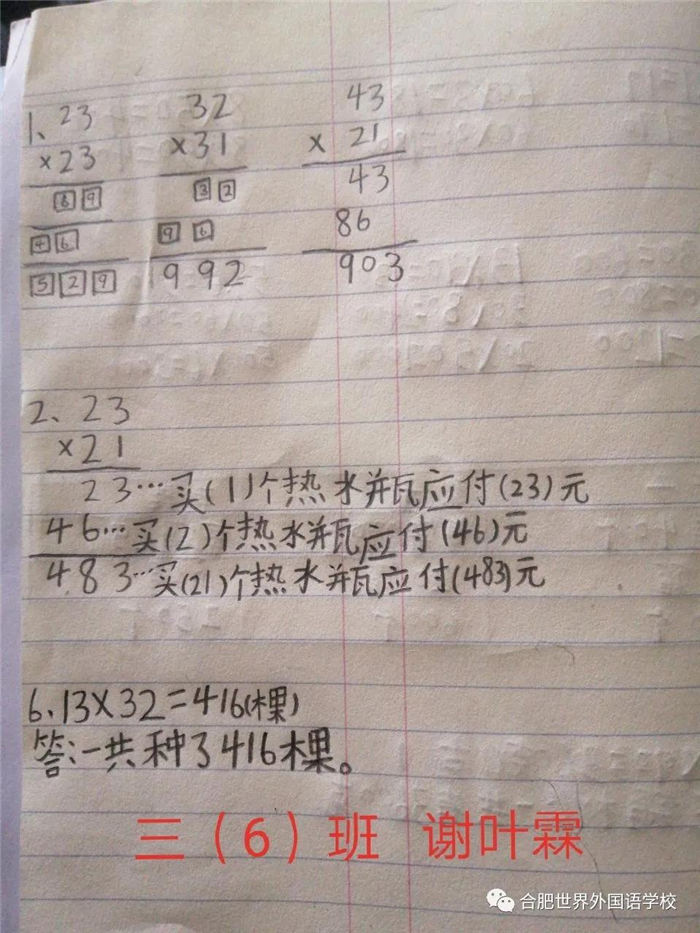 1、23 32 43
×23 ×31 × 21
69 32 43
46 96 86
529 992 903
2、23
×21
23…买(1)个热水瓶应付(23)元
46…买(2)个热水瓶应付(46)元
483…买(21)个热水瓶应付(483)元
6、13×32=416(棵)
答:一共种了416棵。
三（6）班 谢叶霖
合肥世界外国语学校